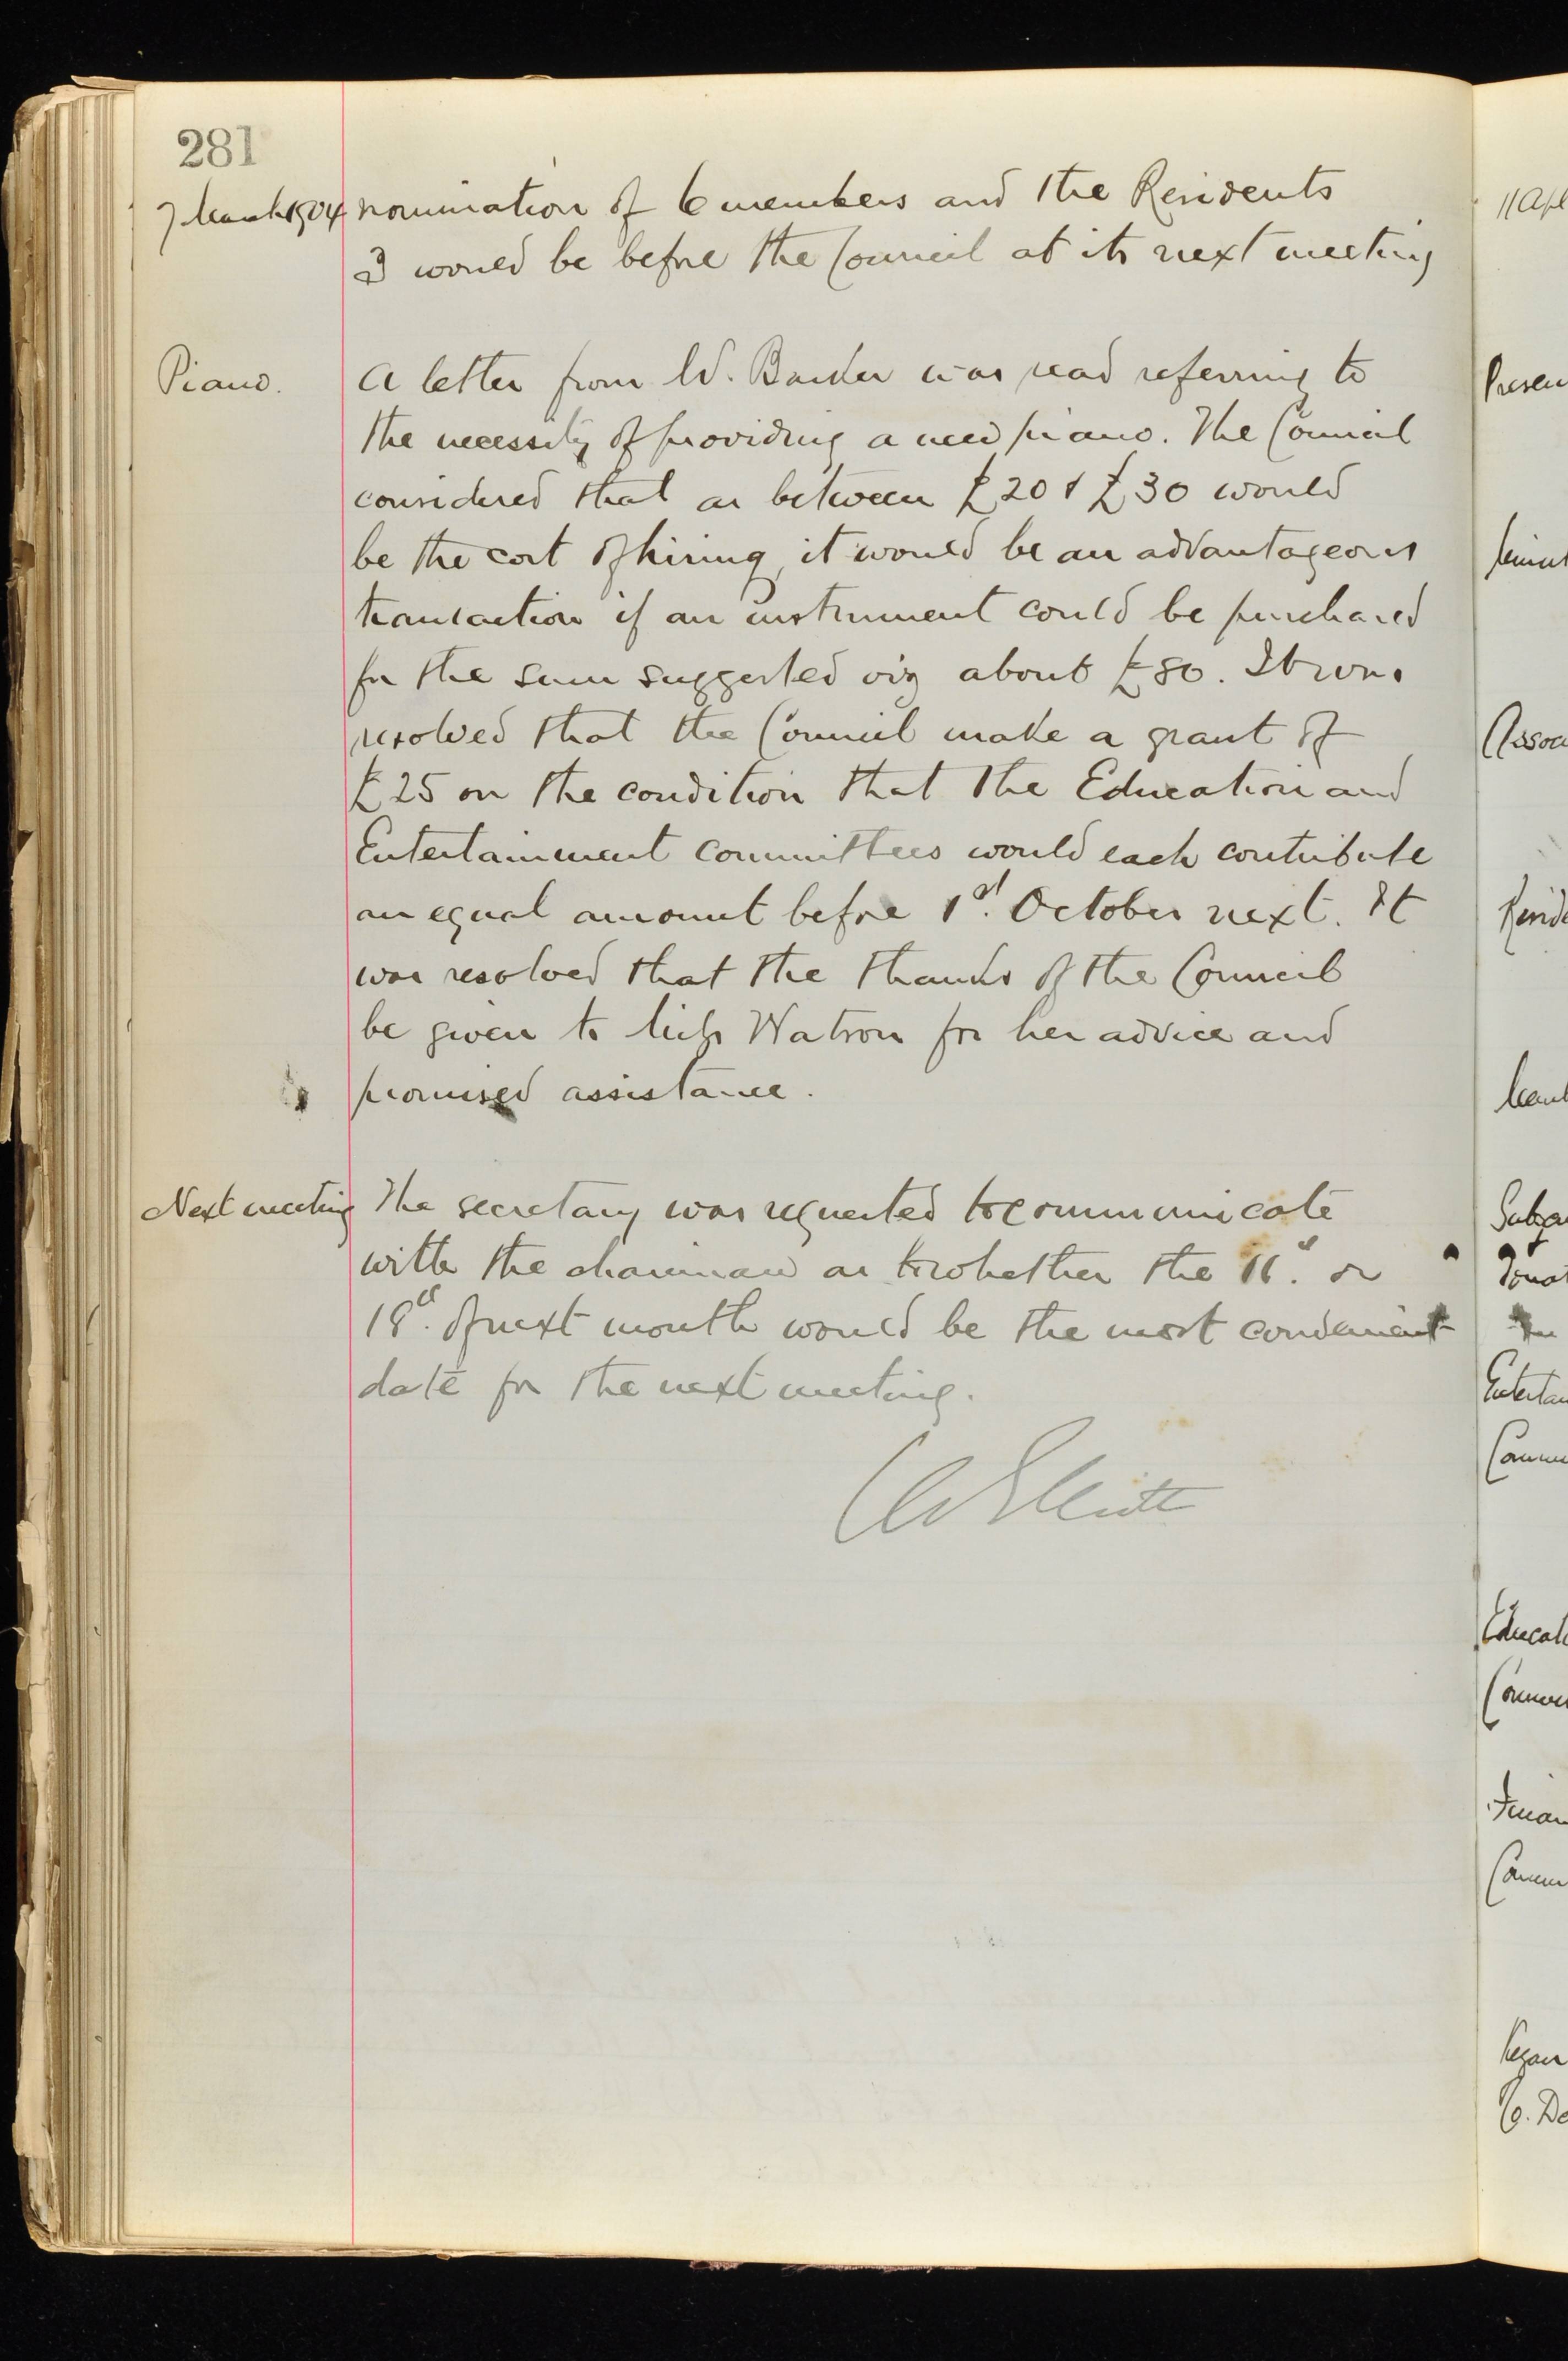 281
7 March 1904 nomination of 6 members and the Residents
3 would be before the Council at its next meeting
Piano. A letter from W. Barker was read referring to
the necessity of providing a new piano. The Council
considered that as between £20 & £30 would
be the cost of hiring, it would be an advantageous
transaction if an instrument could be purchased
for the sum suggested viz about £80. It was
resolved that the Council make a grant of
£25 on the condition that the Education and
Entertainment Committees would each contribute
an equal amount before 1st. October next. It
was resolved that the thanks of the Council
be given to Miss Watson for her advice and
promised assistance.
Next meeting The secretary was requested to communicate
with the chairman as to whether the 11th. or
18th. of next month would be the most convenient
date for the next meeting.
11 Apl
Presen
Minut
Assoc
Resid
Subs
Donat
Enterta
Comm
Educat
Comm
Finan
Comm
Co. De